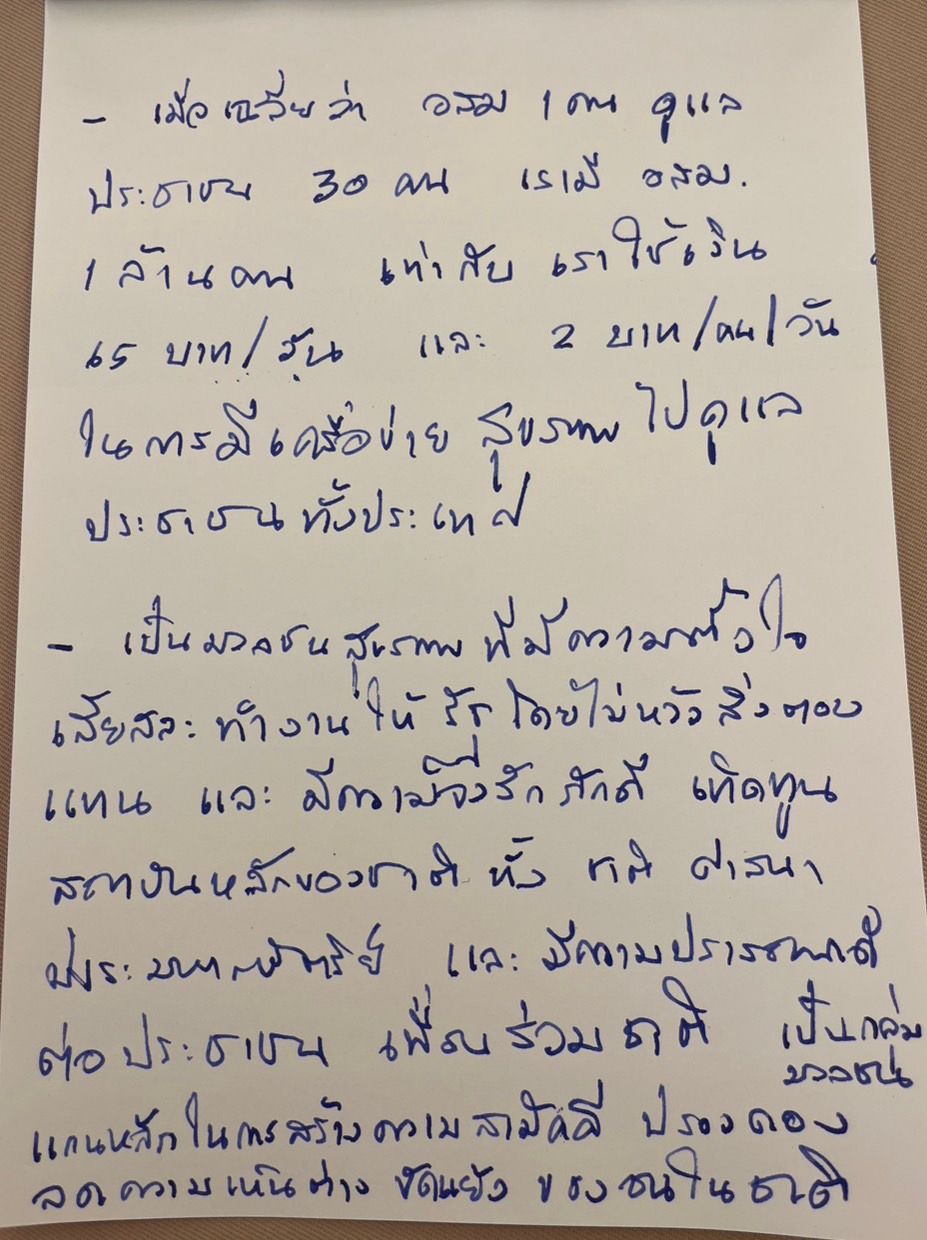 - เมื่อเฉลี่ยว่า อสม 1 คน ดูแล
ประชาชน 30 คน เรามี อสม.
1 ล้านคน เท่ากับ เราใช้เงิน
65 บาท/ และ 2 บาท/คน/วัน
ในการมีเครือข่าย สุขภาพ ไปดูแล
ประชาชนทั้งประเทศ
- เป็นมวลชนสุขภาพ ที่มีความตั้งใจ
เสียสละ ทำงานให้ รัฐ โดยไม่หวังสิ่งตอบ
แทน และ มีความจงรักภักดี เทิดทูน
สถาบันหลักของชาติ ทั้ง ชาติ ศาสนา
พระมหากษัตริย์ และ มีความปรารถนาดี
ต่อ ประชาชน เพื่อนร่วมชาติ เป็นกลุ่ม
มวลชน
แกนหลักในการสร้างความสามัคคี ปรองดอง
ลดความเห็นต่าง ขัดแย้ง ของชนในชาติ